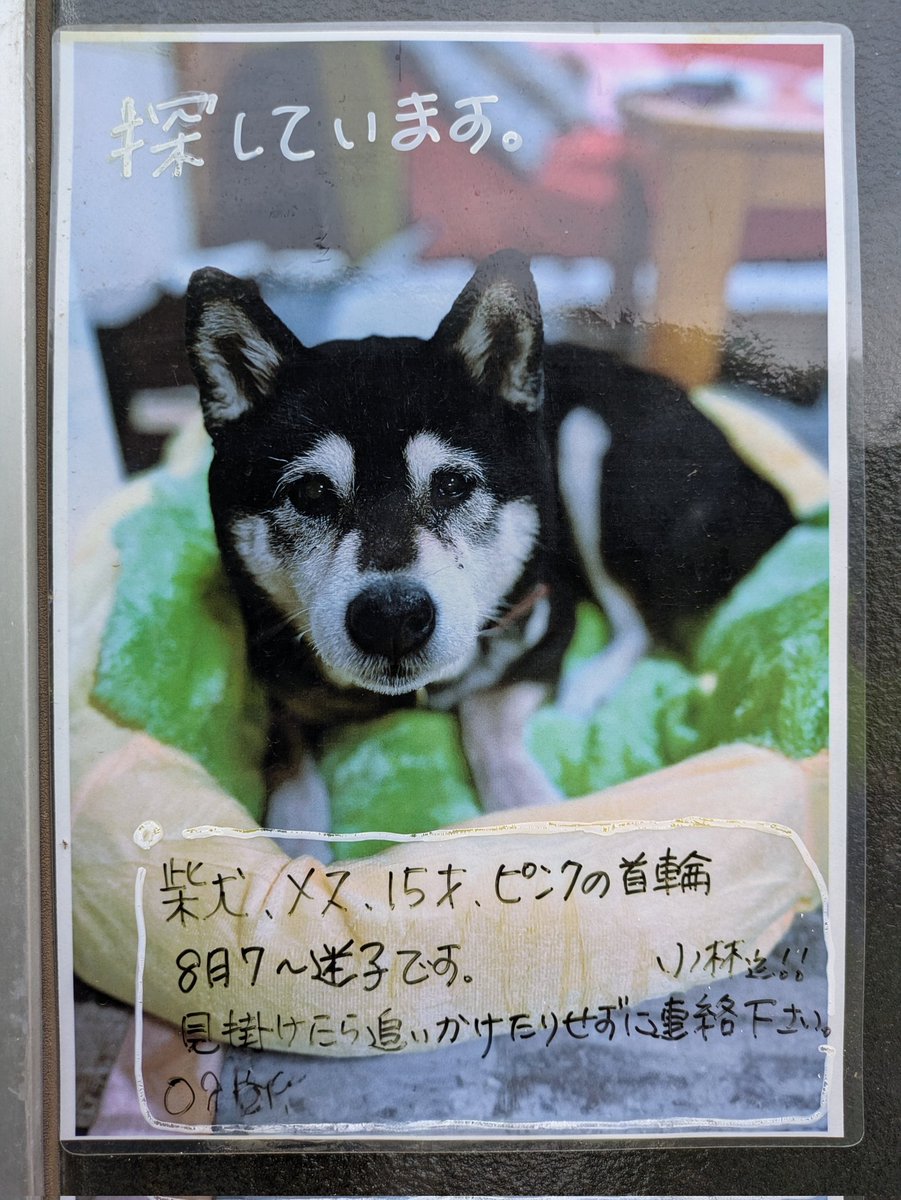 探しています。
柴犬、メス、15才、ピンクの首輪
8月7～迷子です。 小林迄!!
見掛けたら追いかけたりせずに連絡下さい。
09